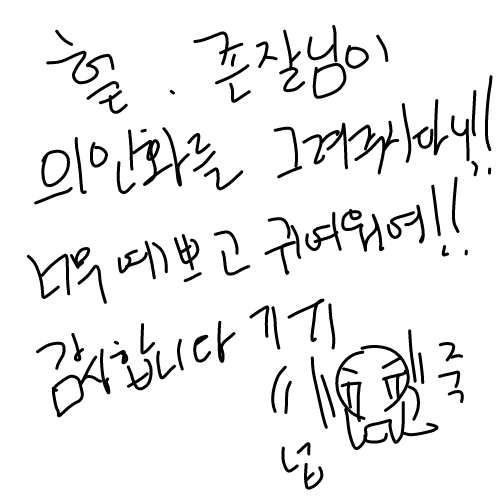 헐. 존잘님이
의인화를 그려주시다니!!
너무 예쁘고 귀여워여!!
감사합니다 ㅠㅠ
넙죽